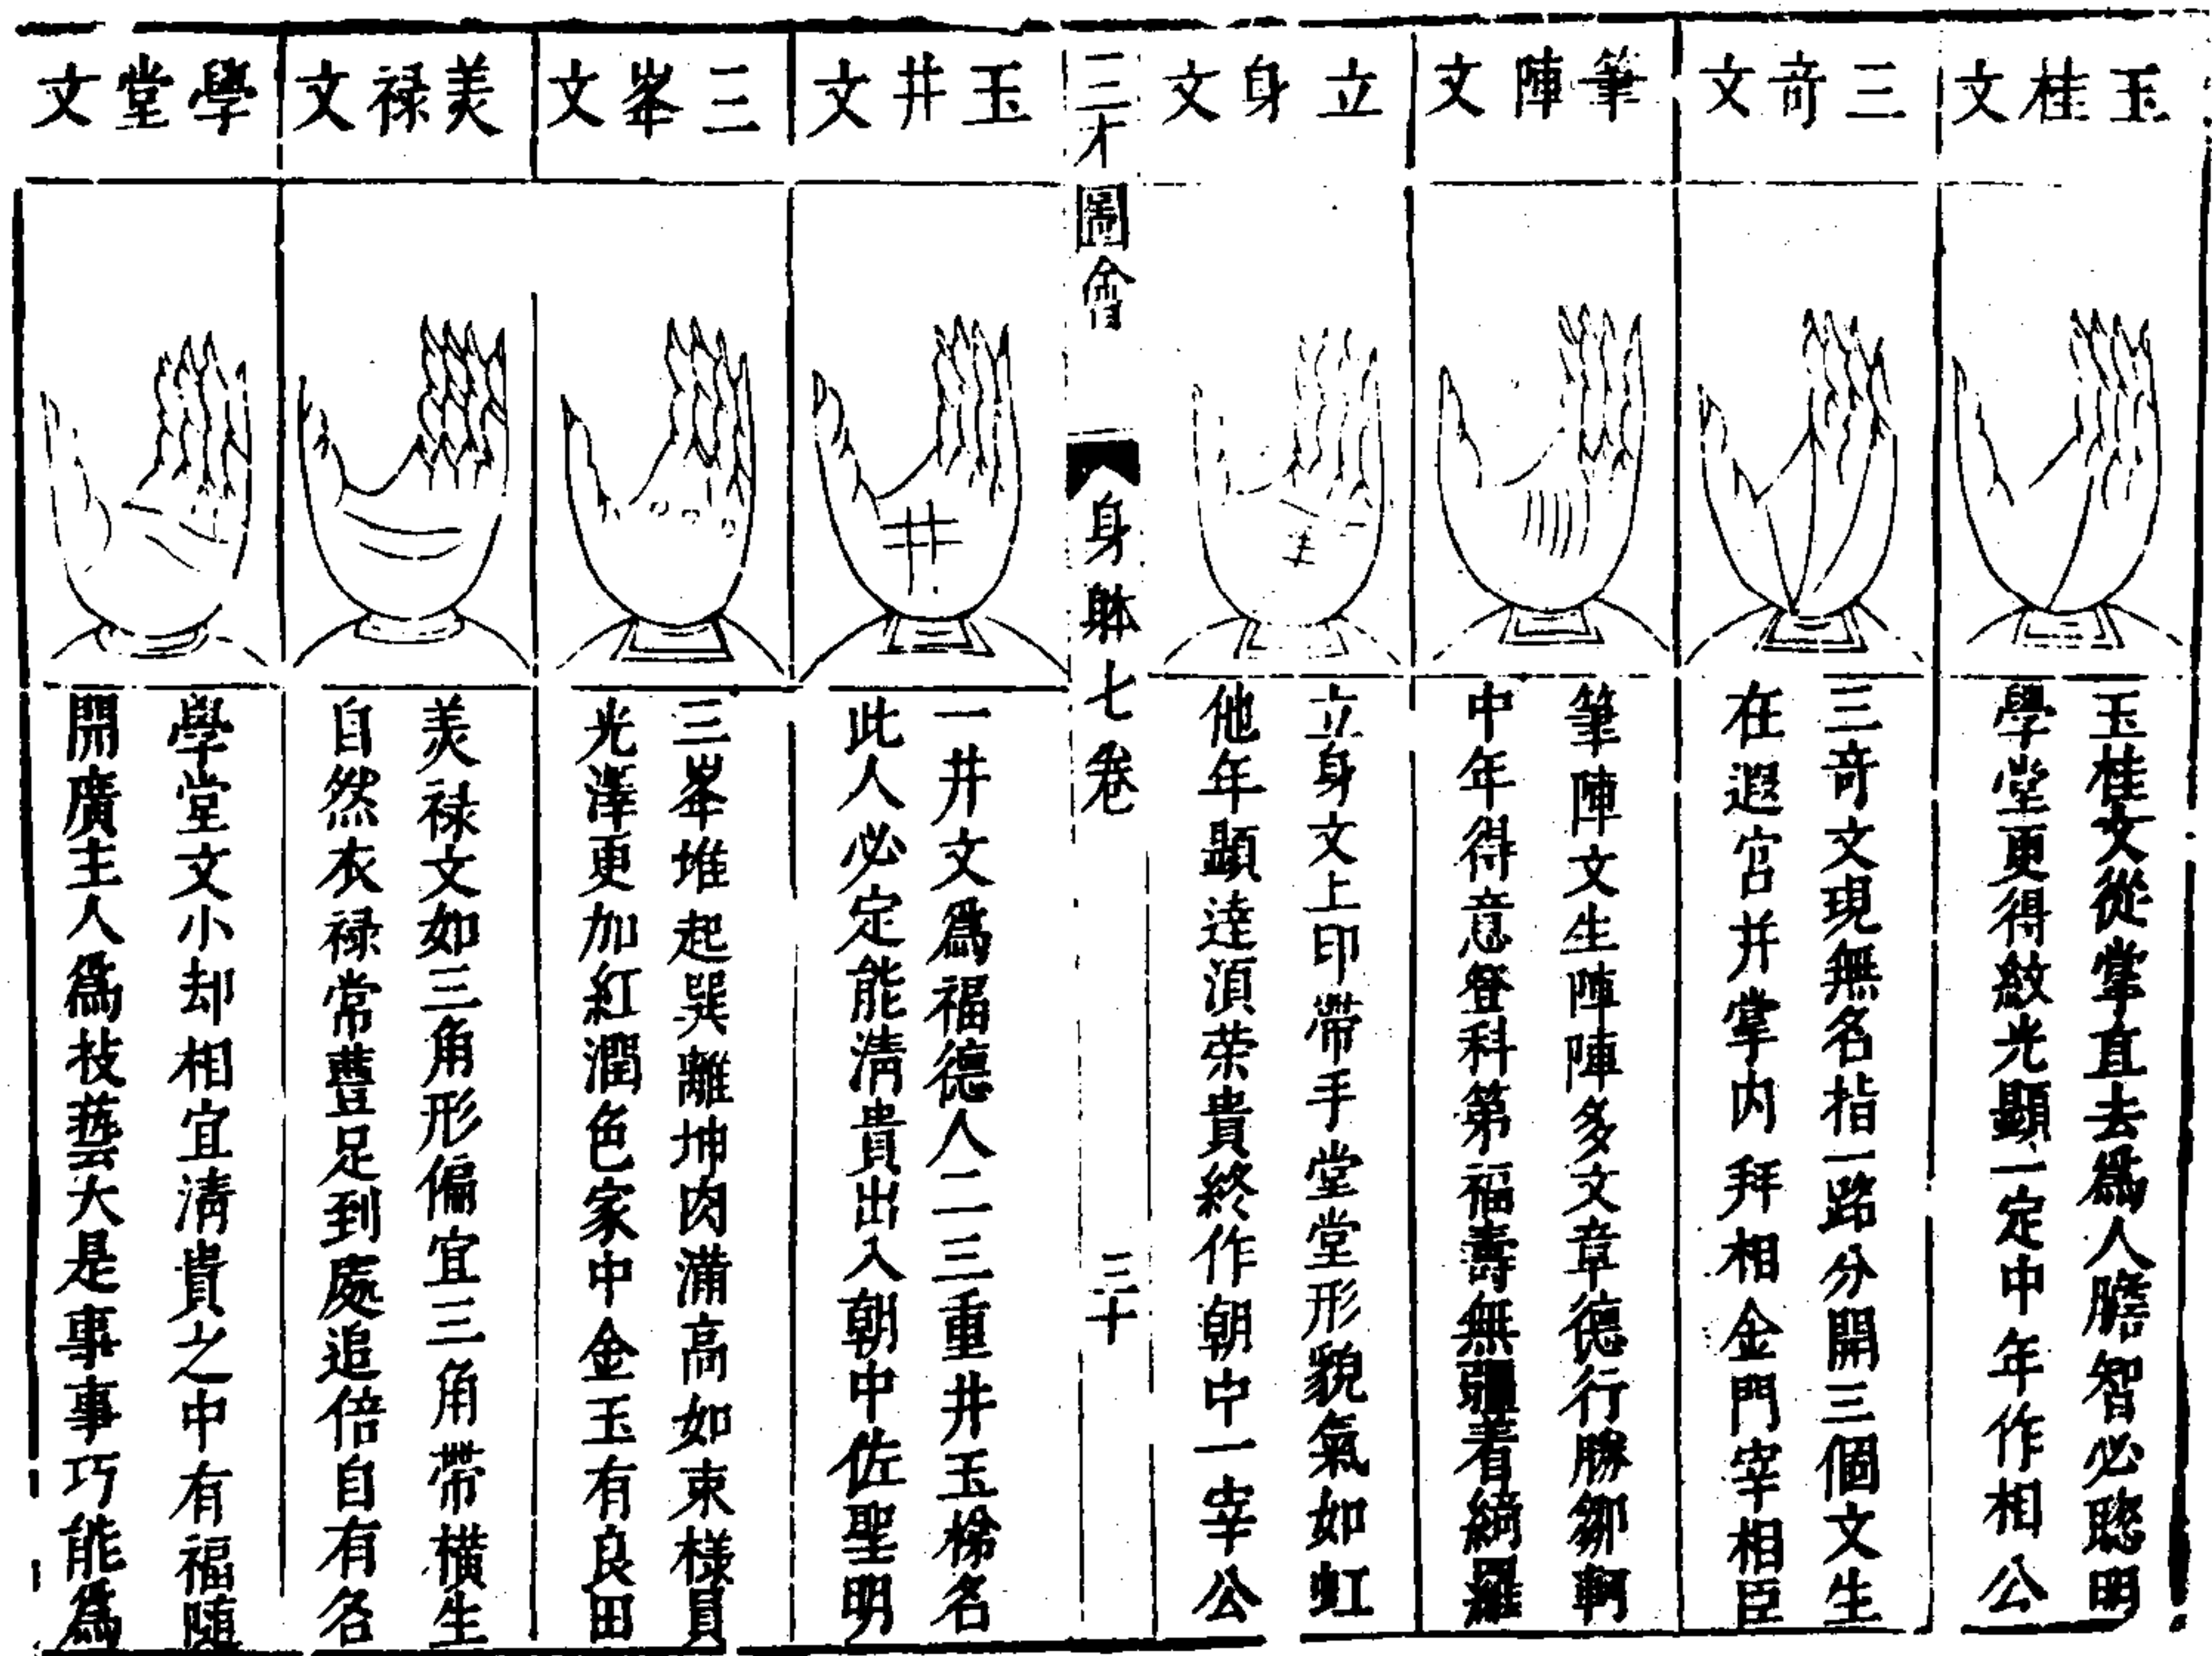 玉桂文
玉桂文從掌直去爲人膽智必聰明
學堂更得紋光顯一定中年作相公
三奇文
三奇文現無名指一路分開三個文生
在遐宮并掌内拜相金門宰相臣
筆陣文
筆陣文生陣陣多文章德行勝鄒軻
中年得意登科第福壽無疆著綺羅
立身文
立身文上印帶手堂堂形貌氣如虹
他年顯達湏荣貴終作朝中一宰公
三才圖會
身體七卷
三十
玉井文
一井文爲福德人二三重井玉梯名
此人必定能清貴出入朝中佐聖明
三峯文
三峯堆起巽離坤肉滿高如束樣員
光澤更加紅潤色家中金玉有良田
美禄文
美禄文如三角形偏宜三角帶橫生
自然衣禄常豊足到處追倍自有名
學堂文
學堂文小却相宜清貴之中有福隨
開廣主人爲技藝大是事事巧能爲